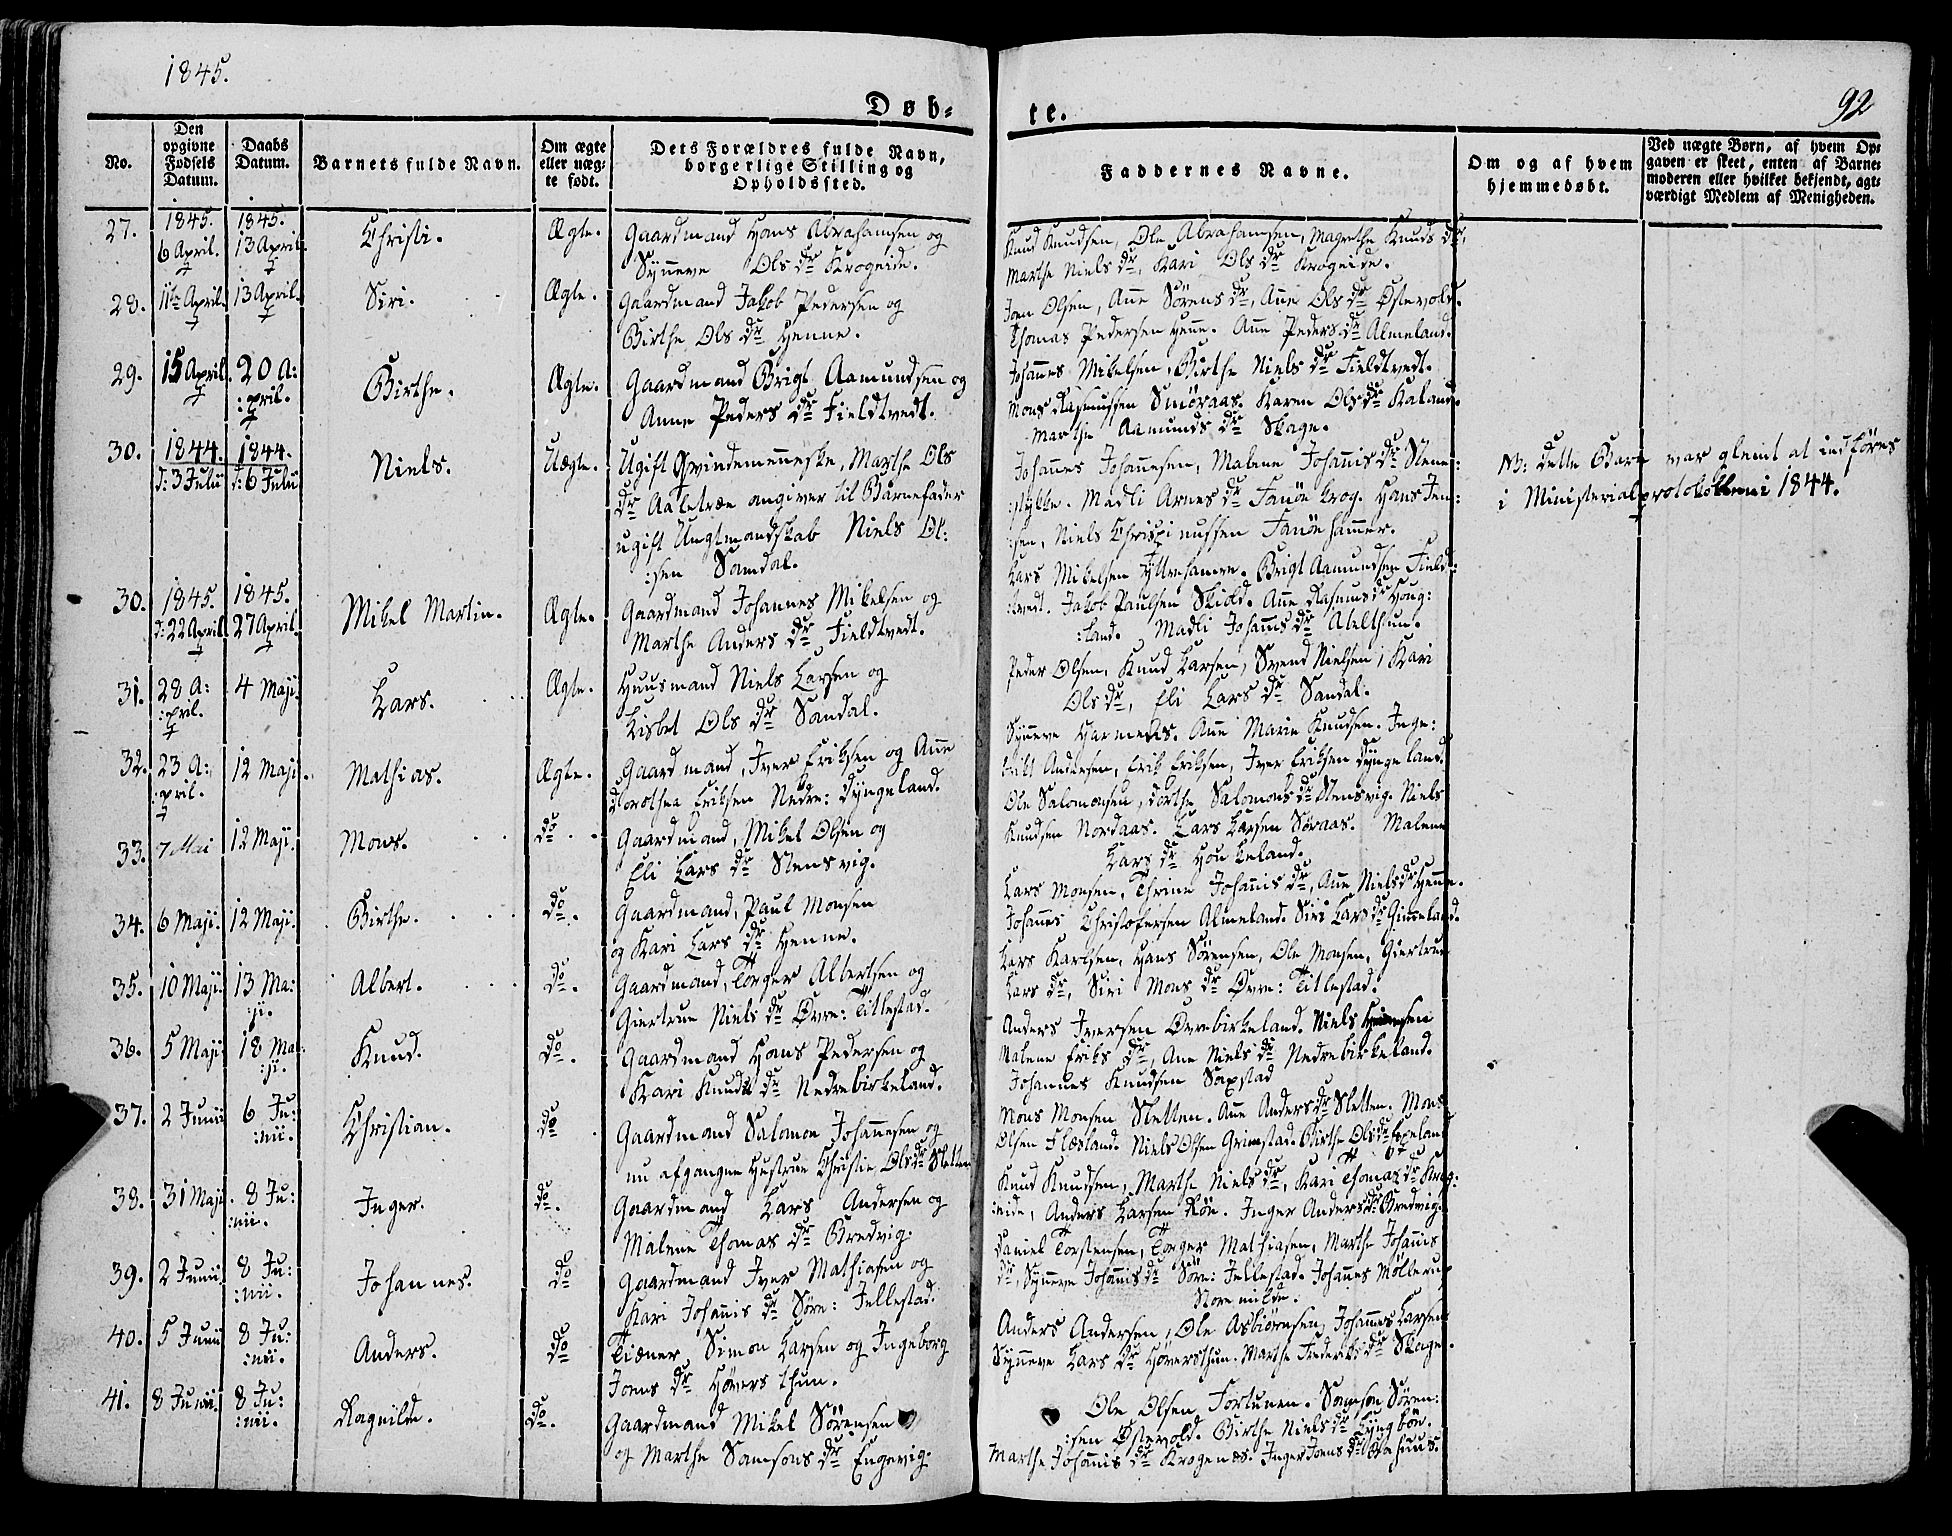 1845.
92
Døb-
te.
No.
Den opgivne Fødsels Datum.
Daabs Datum.
Barnets fulde Navn.
Om ægte eller uæg-te født.
Dets Forældres fulde Navn, borgerlige Stilling og Opholdssted.
Faddernes Navne.
Om og af hvem hjemmedøbt.
Ved uægte Børn, af hvem Op-gaven er skeet, enten af Barne-moderen eller hvilket bekjendt, agt-værdigt Medlem af Menigheden.
27. 1845. 6 April. 1845. 13 April. Christi. Ægte. Gaardmand Hans Abrahamsen og
Synneve Ols dr Krogeide.
Knud Knudsen, Ole Abrahamsen, Magrethe Knuds dr,
Marthe Niels dr, Kari Ols dr Krogeide.
28. 11te April. 13 April. Siri. Ægte. Gaardmand Jakob Pedersen og
Birthe Ols dr Henne.
Joen Olsen, Ane Sørens dr, Ane Ols dr Østevold.
Thomas Pedersen Henne. Ane Peders dr Almeland.
29. 15 April. 20 A:
:pril. Birthe. Ægte. Gaardmand Brigt Aamundsen og
Anne Peders dr Fieldtvedt.
Johannes Mikelsen, Birthe Niels dr Fieldtvedt.
Mons Rasmussen Smøraas. Karen Ols dr Kaland.
Marthe Aamunds dr Skage.
30. 1844. d: 3 Julii 1844. d: 6 Julii Niels. Uægte. Ugift Qvindemenneske, Marthe Ols
dr Aaletræe angiver til Barnefader
ugift Ungtmandskab Niels Ol:
:sen Samdal.
Johannes Johannesen, Malene Johannis dr Stene:
:stykke. Madli Arnes dr Fanøe krog. Hans Jen:
:sen, Niels Chrispinussen Fanøe hammer.
NB: dette Barn var glemt at indføres
i Ministerialprotokollen i 1844.
30. 1845. d: 22 April 1845. 27 April. Mikel Martin. Ægte. Gaardmand Johannes Mikelsen og
Marthe Anders dr Fieldtvedt.
Lars Mikelsen Yttrehamre. Brigt Aamundsen Fieldt:
:tvedt. Jakob Paulsen Skiold. Ane Rasmus dr Houg:
:land. Madli Johannis dr Alelthun.
31. 28 A:
:pril. 4 Maji. Lars. Ægte. Huusmand Niels Larsen og
Lisbet Ols dr Sandal.
Peder Olsen, Knud Larsen, Svend Nielsen, Kari
Ols dr, Eli Lars dr Sandal.
32. 23 A:
:pril. 12 Maji. Mathias. Ægte. Gaardmand, Iver Eriksen og Ane
Dorothea Eriksen Nedre: Dyngeland.
Synneve Harmens. Ane Marie Knudsen. Inge:
brikt Andersen, Erik Eriksen, Iver Eriksen Dyngeland.
33. 7 Mai 12 Maji. Mons. do Gaardmand, Mikel Olsen og
Eli Lars dr Stensvig.
Ole Salomonsen, Dorthe Salomons dr Stensvig. Niels
Knudsen Nordaas. Lars Larsen Søraas. Malene
Lars dr Houkeland.
34. 6 Maji. 12 Maji. Birthe. do. Gaardmand, Paul Monsen
og Kari Lars dr Henne.
Lars Monsen, Thrine Johannis dr, Ane Niels dr Henne.
Johannes Christofersen Almeland. Siri Lars dr Gimmeland.
35. 10 Maji. 13 Ma:
:ji. Albert. do. Gaardmand, Torger Albertsen og
Giertrue Niels dr Øvre: Titlestad.
Lars Karlsen, Hans Sørensen, Ole Monsen, Giertrue
Lars dr, Siri Mons dr Øvre: Titlestad.
36. 5 Maji 18 Ma:
:ji. Knud. do. Gaardmand Hans Pedersen og
Kari Knuds dr Nedrebirkeland.
Anders Iversen Øvrebirkeland. Niels
Malene Eriks dr, Ane Niels dr Nedrebirkeland.
Johannes Knudsen Sapstad
37. 2 Junii 6 Ju:
:nii. Christian. do Gaardmand Salomon Johannesen og
nu afgangne Hustrue Christie Ols dr Sletten
Mons Monsen Sletten. Ane Anders dr Sletten. Mons
Olsen Flæsland. Niels Olsen Grimstad. Birthe Ols dr Espeland
38. 31 Maji 8 Ju:
:nii. Inger. do. Gaardmand Lars Andersen og
Malene Thomas dr Bredvig.
Knud Knudsen, Marthe Niels dr, Kari Thomas dr Krog:
:eide, Anders Larsen Røe. Inger Anders dr Bredvig.
39. 2 Junii 8 Ju:
:nii. Johannes. do Gaardmand Iver Mathiasen og
Kari Johannis dr Søre: Jellestad.
Daniel Torstensen, Torger Mathiasen, Marthe Johannis
dr, Synneve Johannis dr Søre: Jellestad. Johannes Møllerup
Store milde.
40. 5 Junii 8 Ju:
:nii. Anders. do Tiæner Simon Larsen og Ingeborg
Joens dr Høvers thun.
Anders Andersen, Ole Asbiørnsen, Johannes Larsen
Synneve Lars dr Høversthun. Marthe Frederiks dr Skage.
41. 8 Junii. 8 Ju:
:nii. Ragnilde. do. Gaardmand Mikel Sørensen
og Marthe Samsons dr Engevig.
Ole Olsen Fortunen. Samson Søren:
:sen Østevold. Birthe Niels dr Lyngbøe.
Marthe Johannis dr Krogenæs. Inger Joens dr